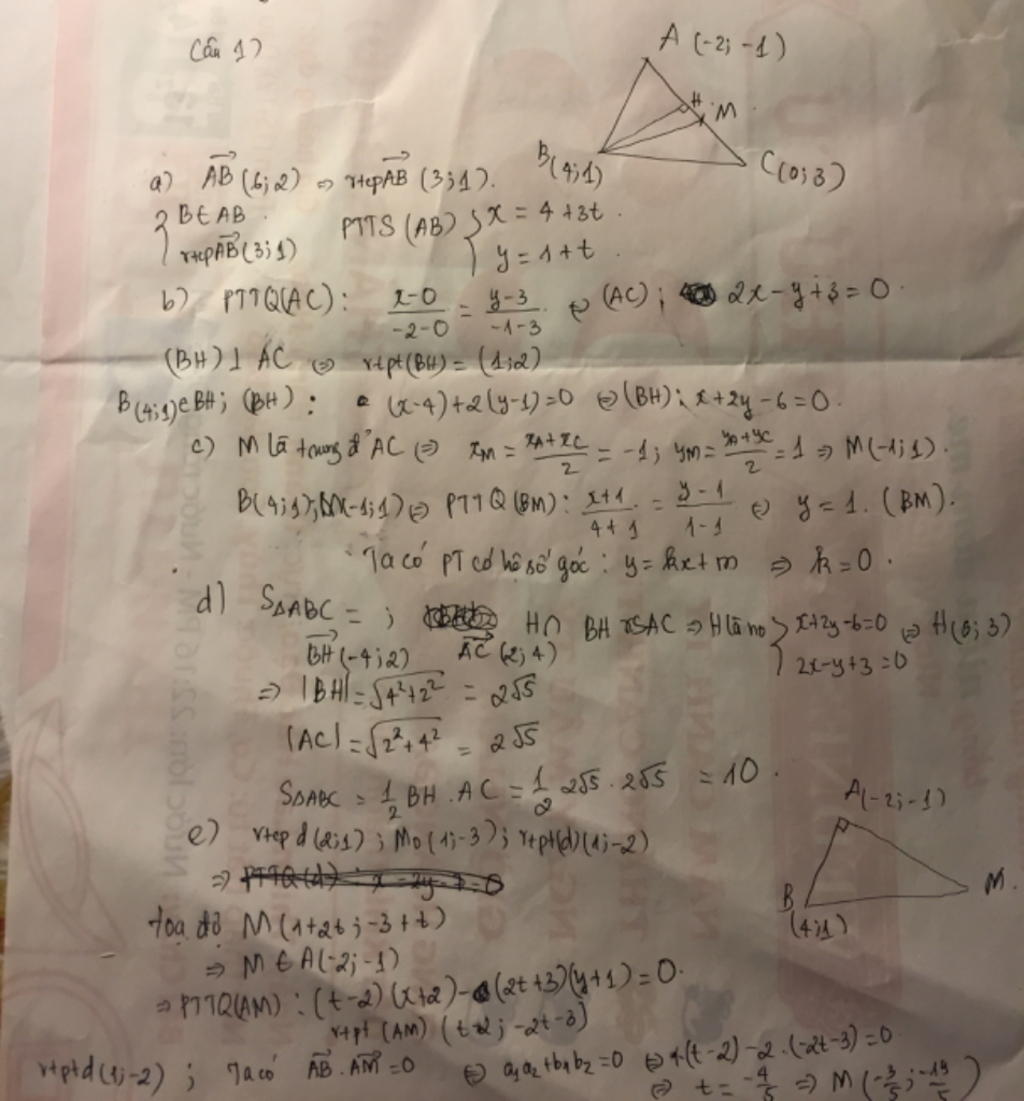 Câu 1)
A (-2; -1)
H M
B(4;1)
C(0;3)
a) AB (6;2) => vtcp AB (3;1).
{ B∈AB
vtcp AB (3;1)
PTTS (AB) { x = 4 + 3t.
y = 1 + t.
b) PTTQ(AC): x-0/-2-0 = y-3/-1-3 ⇔ (AC); 2x-y+3=0.
(BH)⊥AC ⇔ vtpt(BH) = (1;2)
B(4;1)∈BH; (BH): (x-4)+2(y-1)=0 ⇔ (BH): x+2y-6=0.
c) M là trung đ' AC ⇔ xM = xA+xC/2 = -1; yM = yA+yC/2 = 1 => M(-1;1).
B(4;1); M(-1;1) ⇔ PTTQ(BM): x+1/4+1 = y-1/1-1 ⇔ y = 1. (BM).
Ta có PT có hệ số góc: y = kx+m => k = 0.
d) SΔABC = ; H∩ BH và AC => H là no { x+2y-6=0 ⇔ H(0;3)
2x-y+3=0
BH (-4;2) AC (2;4)
=> |BH| = √4²+2² = 2√5
|AC| = √2²+4² = 2√5
SΔABC = 1/2 BH.AC = 1/2 2√5.2√5 = 10.
e) vtcp d(2;1); M0(1;-3); vtpt(d)(1;-2)
=> PTTQ(d): x-2y-7=0
A(-2;-1)
B
(4;1)
M.
toạ độ M(1+2t; -3+t)
=> M∈A(-2;-1)
=> PTTQ(AM): (t-2)(x+2)-(2t+3)(y+1)=0.
vtpt (AM) (t-2; -2t-3)
vtpt d(1;-2); Ta có AB.AM=0 ⇔ a1a2+b1b2=0 ⇔ 1(t-2)-2.(-2t-3)=0
⇔ t = -4/5 => M(-3/5; -19/5)